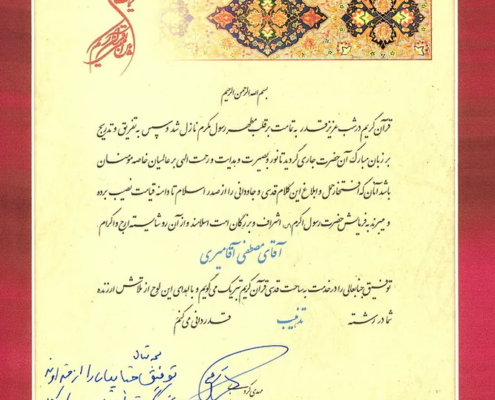 بسم الله الرحمن الرحیم
قرآن کریم در شب عزیز قدر به تمامت بر قلب مطهر رسول مکرم نازل شد و سپس به تفریق و تدریج
بر زبان مبارک آن حضرت جاری گردید تا نور و بصیرت و هدایت و رحمت الهی بر عالمیان خاصه مؤمنان
باشد آنان که افتخار حمل و ابلاغ این کلام قدسی و جاودانی را از صدر اسلام تا دامنه قیامت نصیب برده
و میبرند به فرمایش حضرت رسول اکرم (ص)، اشراف و بزرگان امت اسلامند و از آن رو شایسته ارج و اکرام
آقای مصطفی آقامیری
توفیق جنابعالی را در خدمت به ساحت قدسی قرآن کریم تبریک می گویم و با اهدای این لوح از تلاش ارزنده
شما در رشته تذهیب قدردانی می کنم
توفیق جنابعالی را از خداوند